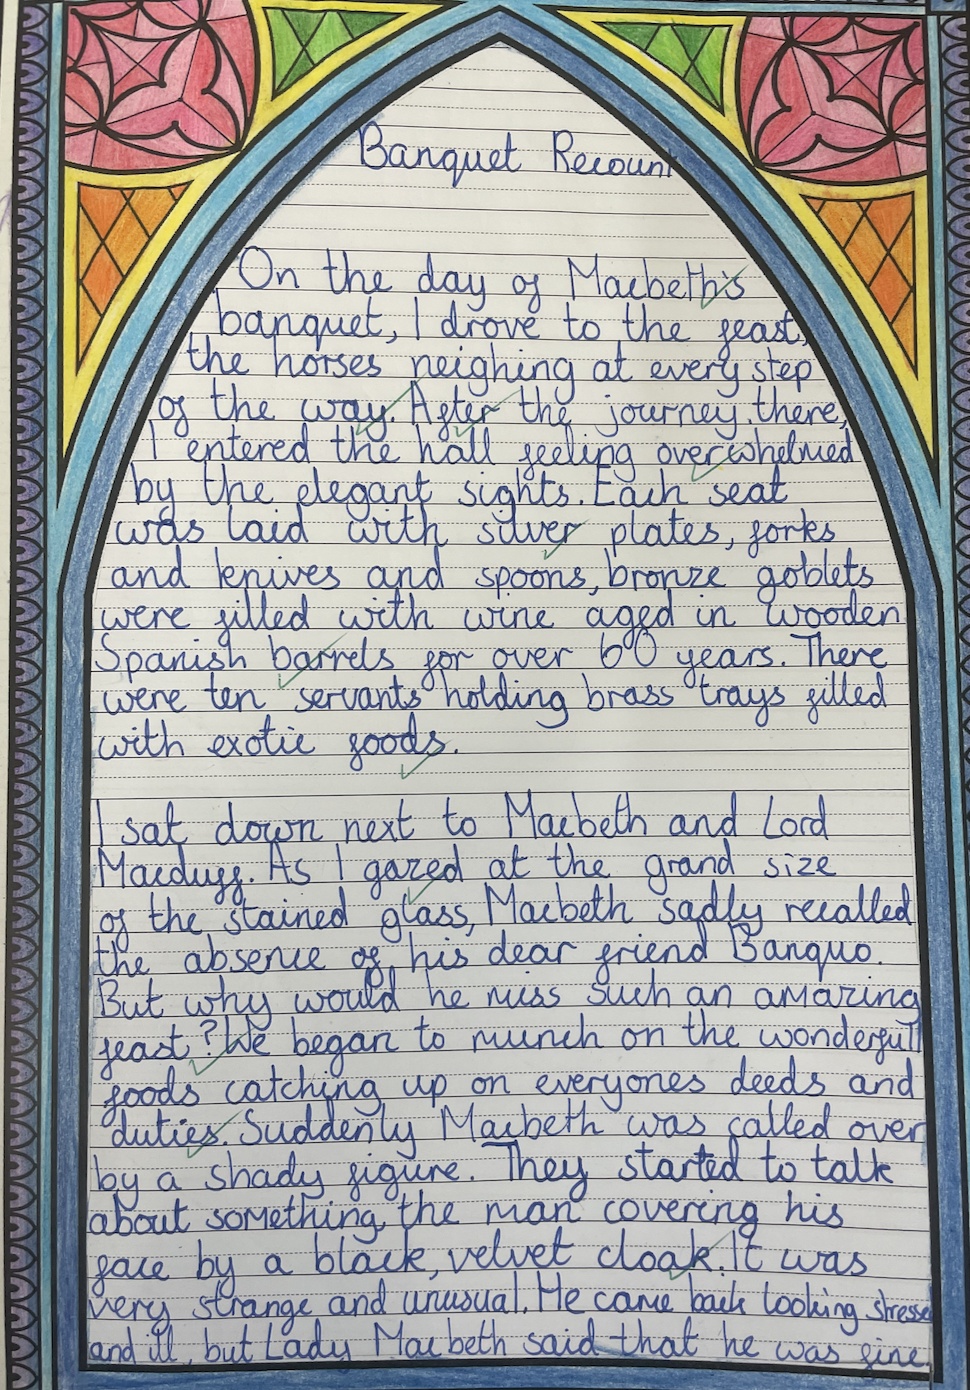 Banquet Recount
On the day of Macbeth's
banquet, I drove to the feast,
the horses neighing at every step
of the way. After the journey there,
I entered the hall feeling overwhelmed
by the elegant sights. Each seat
was laid with silver plates, forks
and knives and spoons, bronze goblets
were filled with wine aged in wooden
Spanish barrels for over 60 years. There
were ten servants holding brass trays filled
with exotic foods.
I sat down next to Macbeth and Lord
Macduff. As I gazed at the grand size
of the stained glass, Macbeth sadly recalled
the absence of his dear friend Banquo.
But why would he miss such an amazing
feast? We began to munch on the wonderfull
foods catching up on everyones deeds and
duties. Suddenly Macbeth was called over
by a shady figure. They started to talk
about something, the man covering his
face by a black, velvet cloak. It was
very strange and unusual. He came back looking stressed
and ill, but Lady Macbeth said that he was fine.